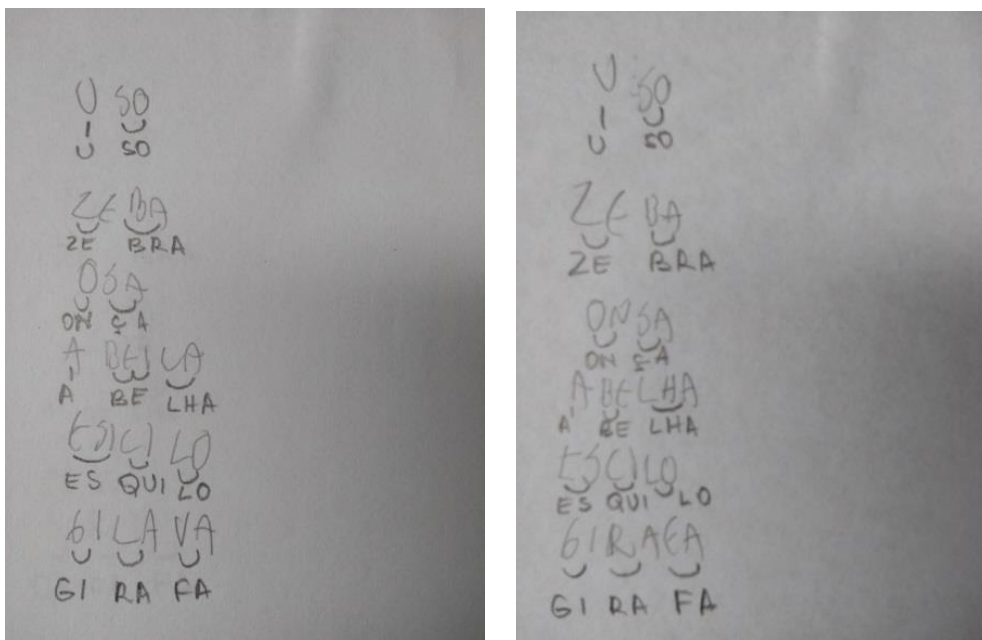 U SO
U SO
ZE BA
ZE BRA
OSA
ON ÇA
A BEI LA
A BE LHA
ESI CI LO
ES QUI LO
GI LA VA
GI RA FA
U SO
U SO
ZE BA
ZE BRA
ON SA
ON ÇA
A BE LHA
A BE LHA
ES CI LO
ES QUI LO
GI RA FA
GI RA FA